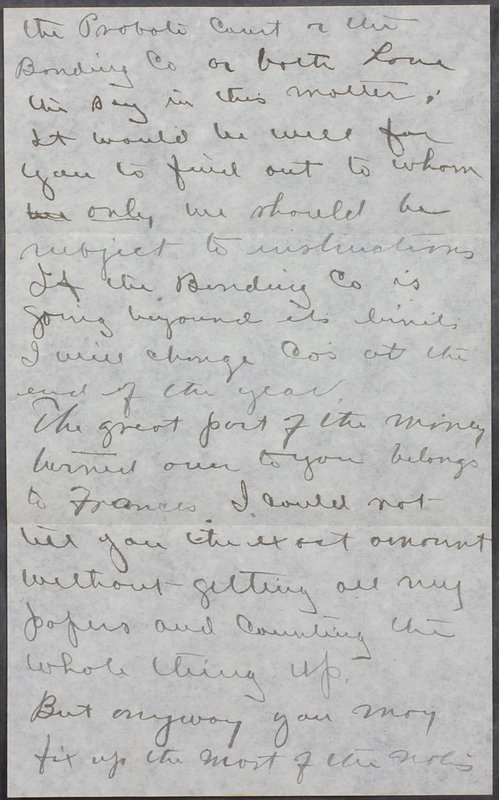 the Probate Court or the
Bonding Co or both have
the say in this matter.
It would be well for
you to find out to whom
we only, we should be
subject to instructions
If the Bonding Co is
going beyound its limits
I will change Co's at the
end of the year.
The great part of the money
turned over to you belongs
to Frances. I could not
tell you the exact amount
without getting all my
papers and counting the
whole thing up.
But anyway you may
fix up the most of the notes